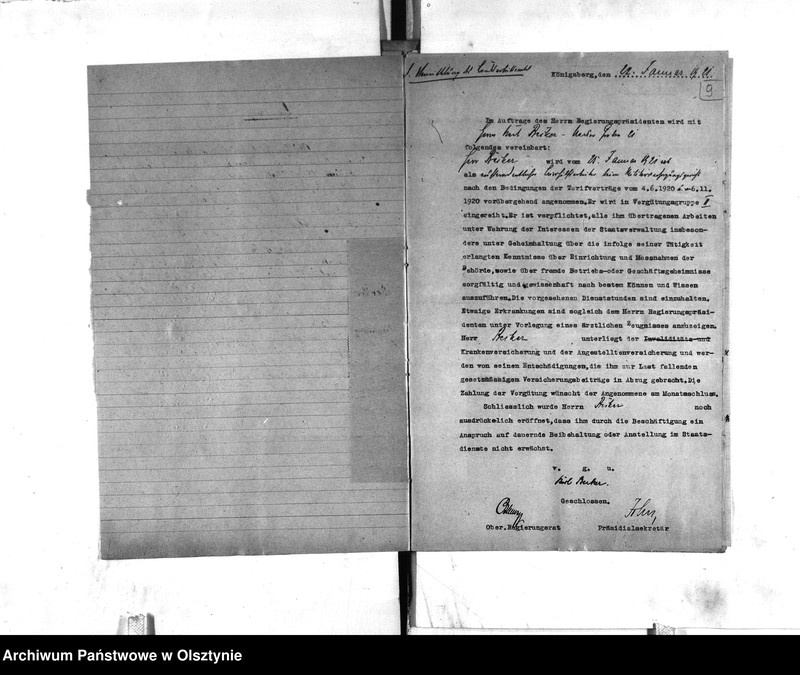 Königsberg, den 22. Januar 1921.
9
Im Auftrage des Herrn Regierungspräsidenten wird mit
Herrn
folgendes vereinbart:
Herr wird vom Januar
als
nach den Bedingungen der Tarifverträge vom 4.6.1920 6.11.
1920 vorübergehend angenommen. Er wird in Vergütungsgruppe II
eingereiht. Er ist verpflichtet, alle ihm übertragenen Arbeiten
unter Wahrung der Interessen der Staatsverwaltung insbeson-
dere unter Geheimhaltung über die infolge seiner Tätigkeit
erlangten Kenntnisse über Einrichtung und Massnahmen der
Behörde, sowie über fremde Betriebs-oder Geschäftsgeheimnisse
sorgfältig und gewissenhaft nach bestem Können und Wissen
auszuführen. Die vorgesehenen Dienststunden sind einzuhalten.
Etwaige Erkrankungen sind sogleich dem Herrn Regierungspräsi-
denten unter Vorlegung eines ärztlichen Zeugnisses anzuzeigen.
Herr unterliegt der Invaliditäts-und
Krankenversicherung und der Angestelltenversicherung und wer-
den von seinen Entschädigungen, die ihm zur Last fallenden
gesetzmässigen Versicherungsbeiträge in Abzug gebracht. Die
Zahlung der Vergütung wünscht der Angenommene am Monatsschluss.
Schliesslich wurde Herrn noch
ausdrücklich eröffnet, dass ihm durch die Beschäftigung ein
Anspruch auf dauernde Beibehaltung oder Anstellung im Staats-
dienste nicht erwächst.
v. g. u.
Geschlossen.
Ober.Regierungsrat Präsidialsekretär
Archiwum Państwowe w Olsztynie